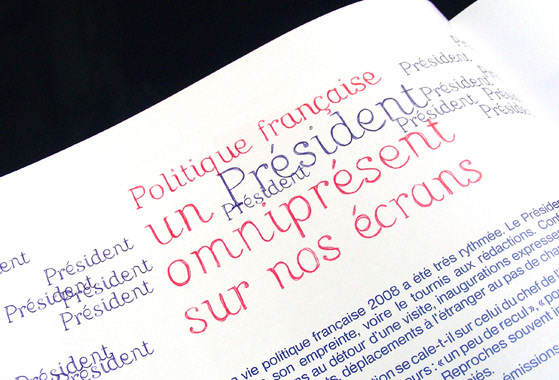 Politique française
un Président
omniprésent
sur nos écrans
Président
Président
Président
Président
Président
Président
Président
Président
Président
Président
vie politique française 2008 a été très rythmée. Le Préside
son empreinte, voire le tournis aux rédactions. Com
au détour d'une visite, inaugurations expresse
déplacements à l'étranger au pas de cha
se cale-t-il sur celui du chef de l
: « un peu de recul », « po
Reproches souvent in
émissions